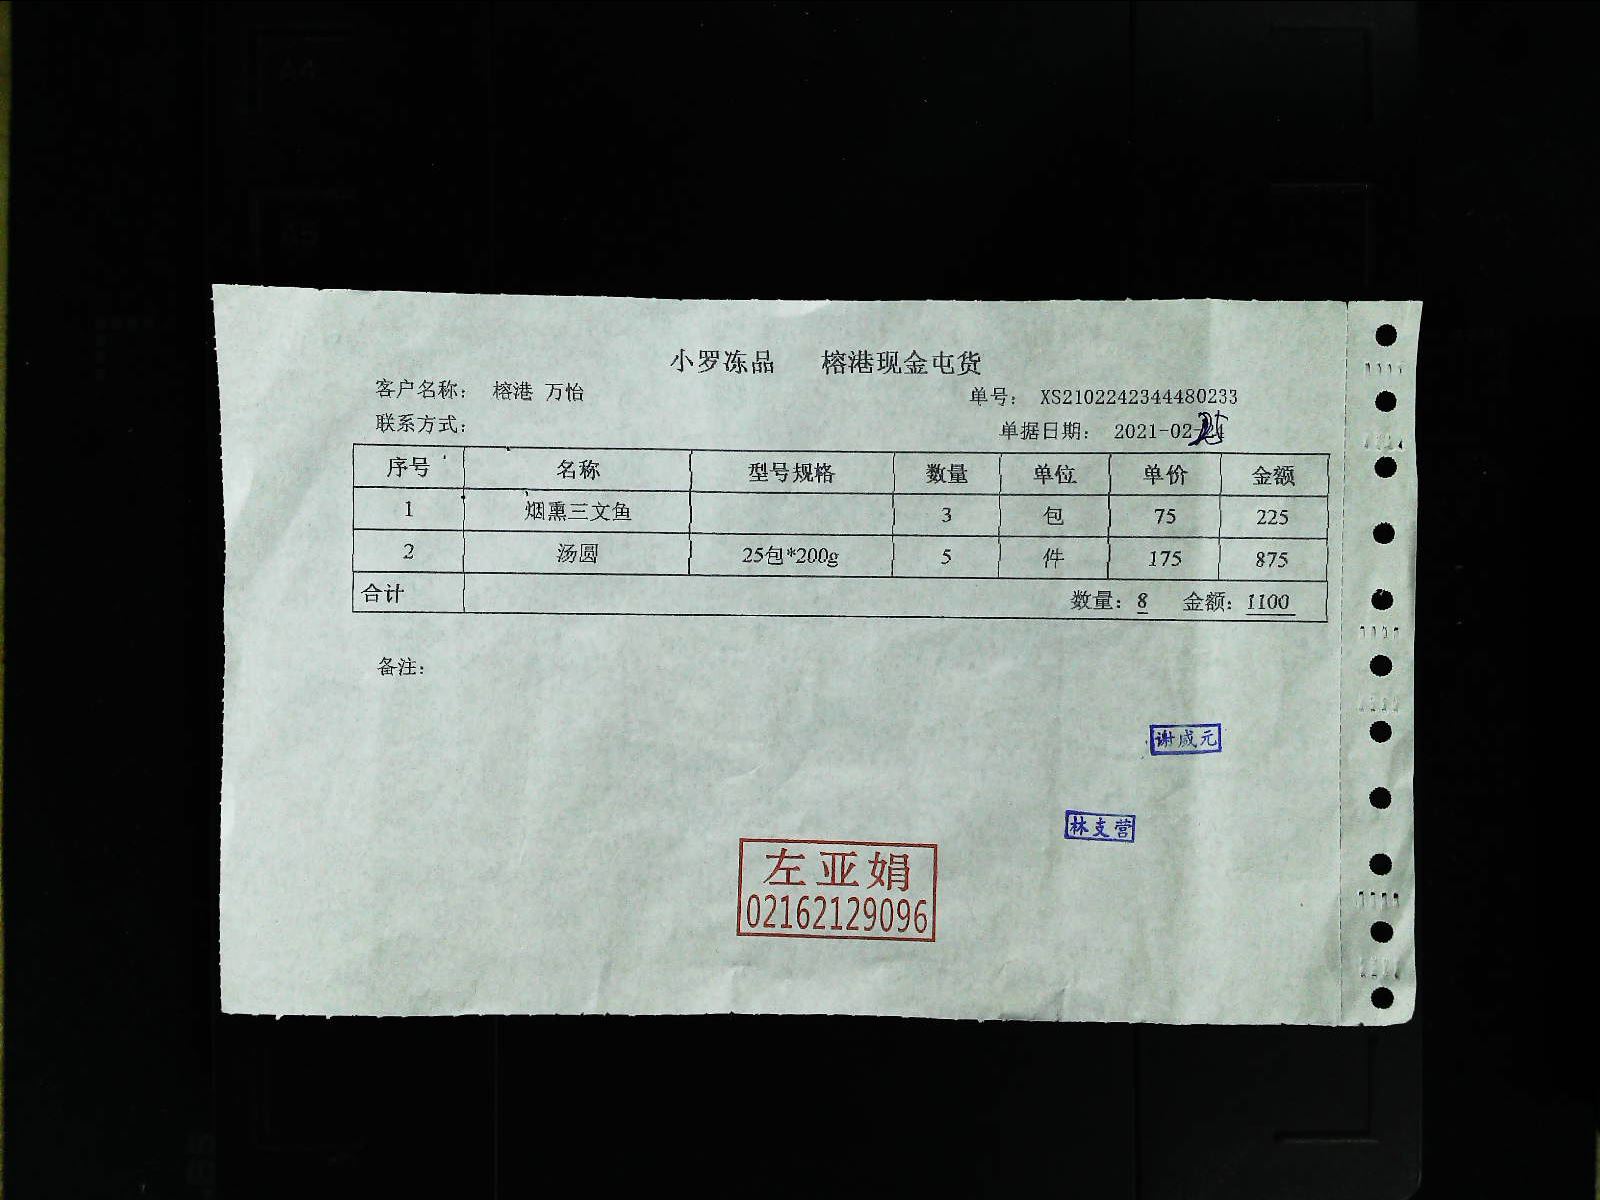 小罗冻品 榕港现金屯货
客户名称： 榕港 万怡
单号： XS2102242344480233
联系方式：
单据日期： 2021-02-
序号 名称 型号规格 数量 单位 单价 金额
1 烟熏三文鱼 3 包 75 225
2 汤圆 25包*200g 5 件 175 875
合计 数量：8 金额：1100
备注：
谢成元
林支营
左亚娟
02162129096